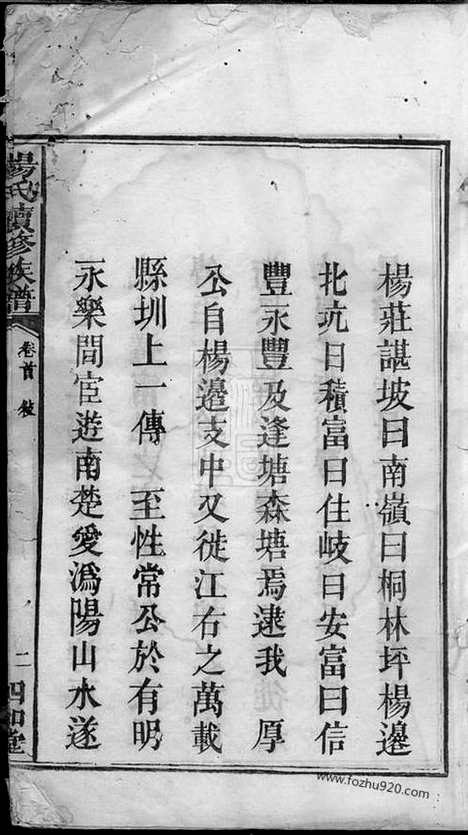 楊莊諶坡曰南嶺曰桐林坪楊邊
北坑曰積富曰住岐曰安富曰信
豐永豐及逢塘森塘焉逮我 厚
公自楊邉支中又徙江右之萬載
縣圳上一傳 至性常公於有明
永樂間宦遊南楚愛溈陽山水遂
楊氏續修族譜
卷首
二
四知堂
www.fozhu920.com